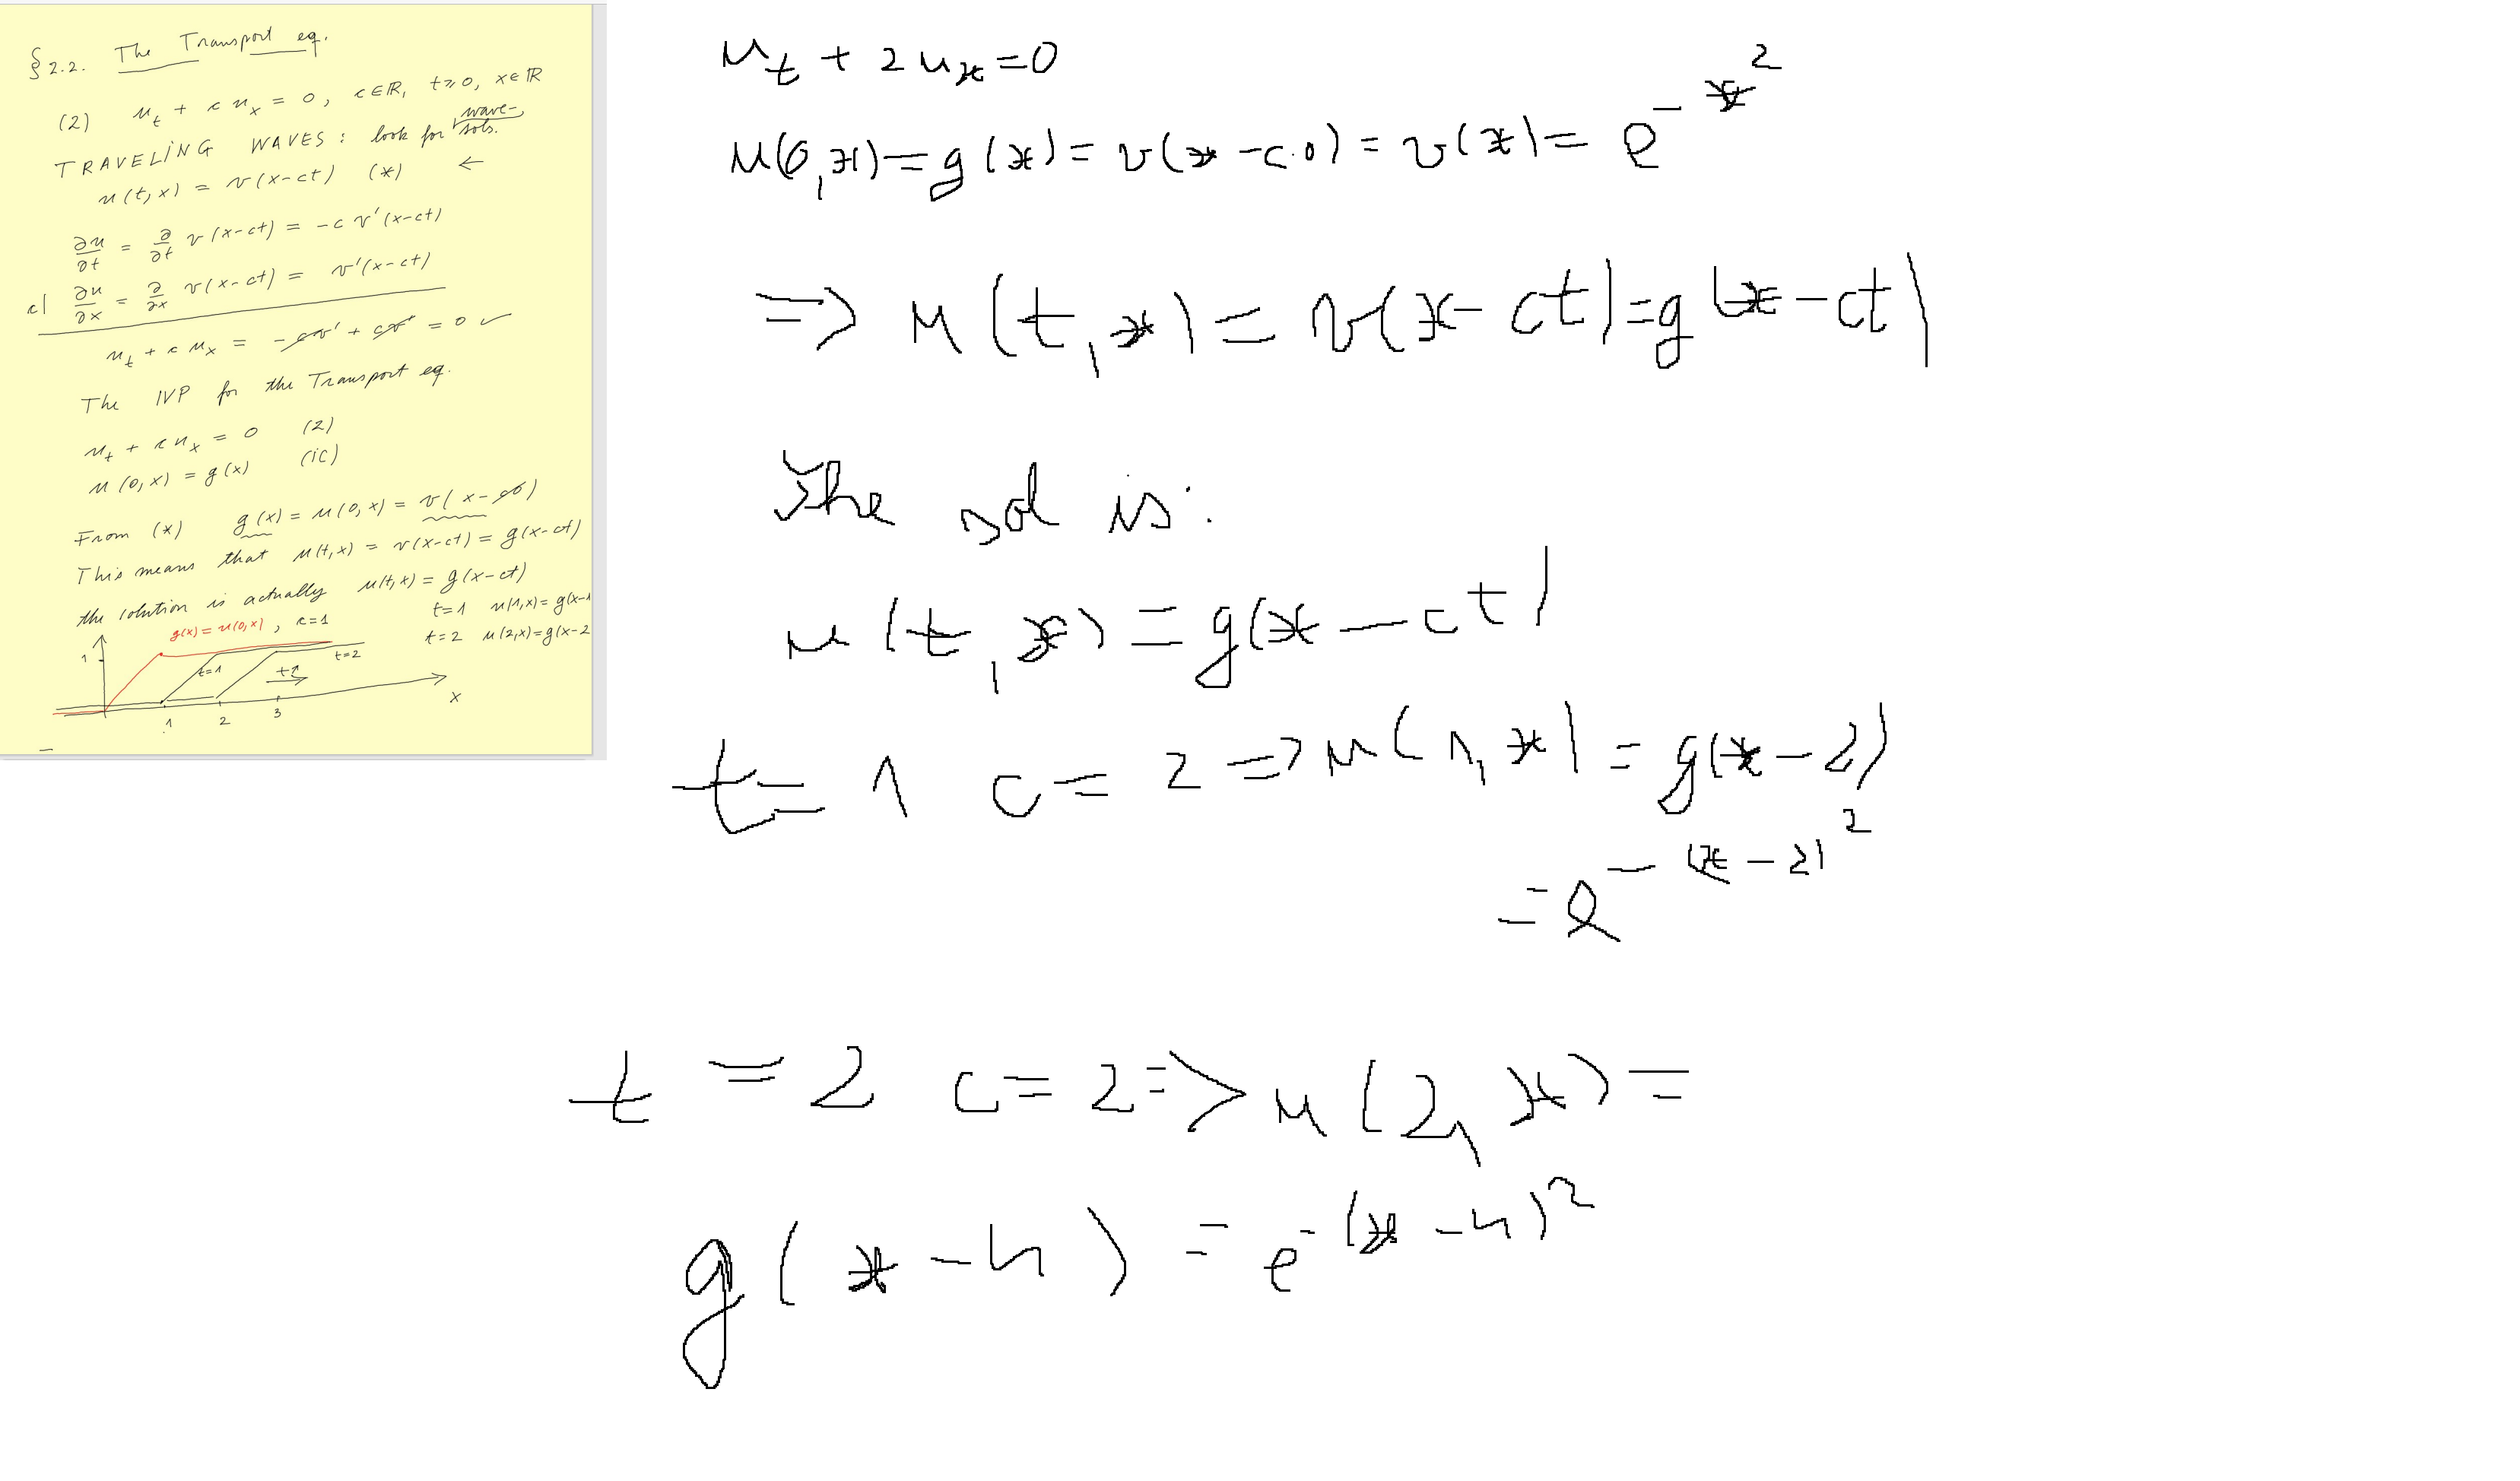 § 2.2. The Transport eq.
(2) u_t + c u_x = 0, c∈ℝ, t≥0, x∈ℝ
TRAVELING WAVES: look for wave-sols.
u(t,x) = v(x-ct) (*) ←
∂u/∂t = ∂/∂t v(x-ct) = -c v'(x-ct)
c| ∂u/∂x = ∂/∂x v(x-ct) = v'(x-ct)
u_t + c u_x = -cv' + cv' = 0 ✓
The IVP for the Transport eq.
u_t + c u_x = 0 (2)
u(0,x) = g(x) (ic)
From (*) g(x) = u(0,x) = v(x-c0)
This means that u(t,x) = v(x-ct) = g(x-ct)
the solution is actually u(t,x) = g(x-ct)
t=1 u(1,x)=g(x-1
t=2 u(2,x)=g(x-2
g(x)=u(0,x), c=1
1
t=1
t↑
t=2
1 2 3 x
u_t + 2u_x = 0
u(0,x) = g(x) = v(x-c·0) = v(x) = e^{-x^2}
=> u(t,x) = v(x-ct) = g(x-ct)
The sol is:
u(t,x) = g(x-ct)
t=1 c=2 => u(1,x) = g(x-2)
= e^{-(x-2)^2}
t=2 c=2 => u(2,x) =
g(x-4) = e^{-(x-4)^2}